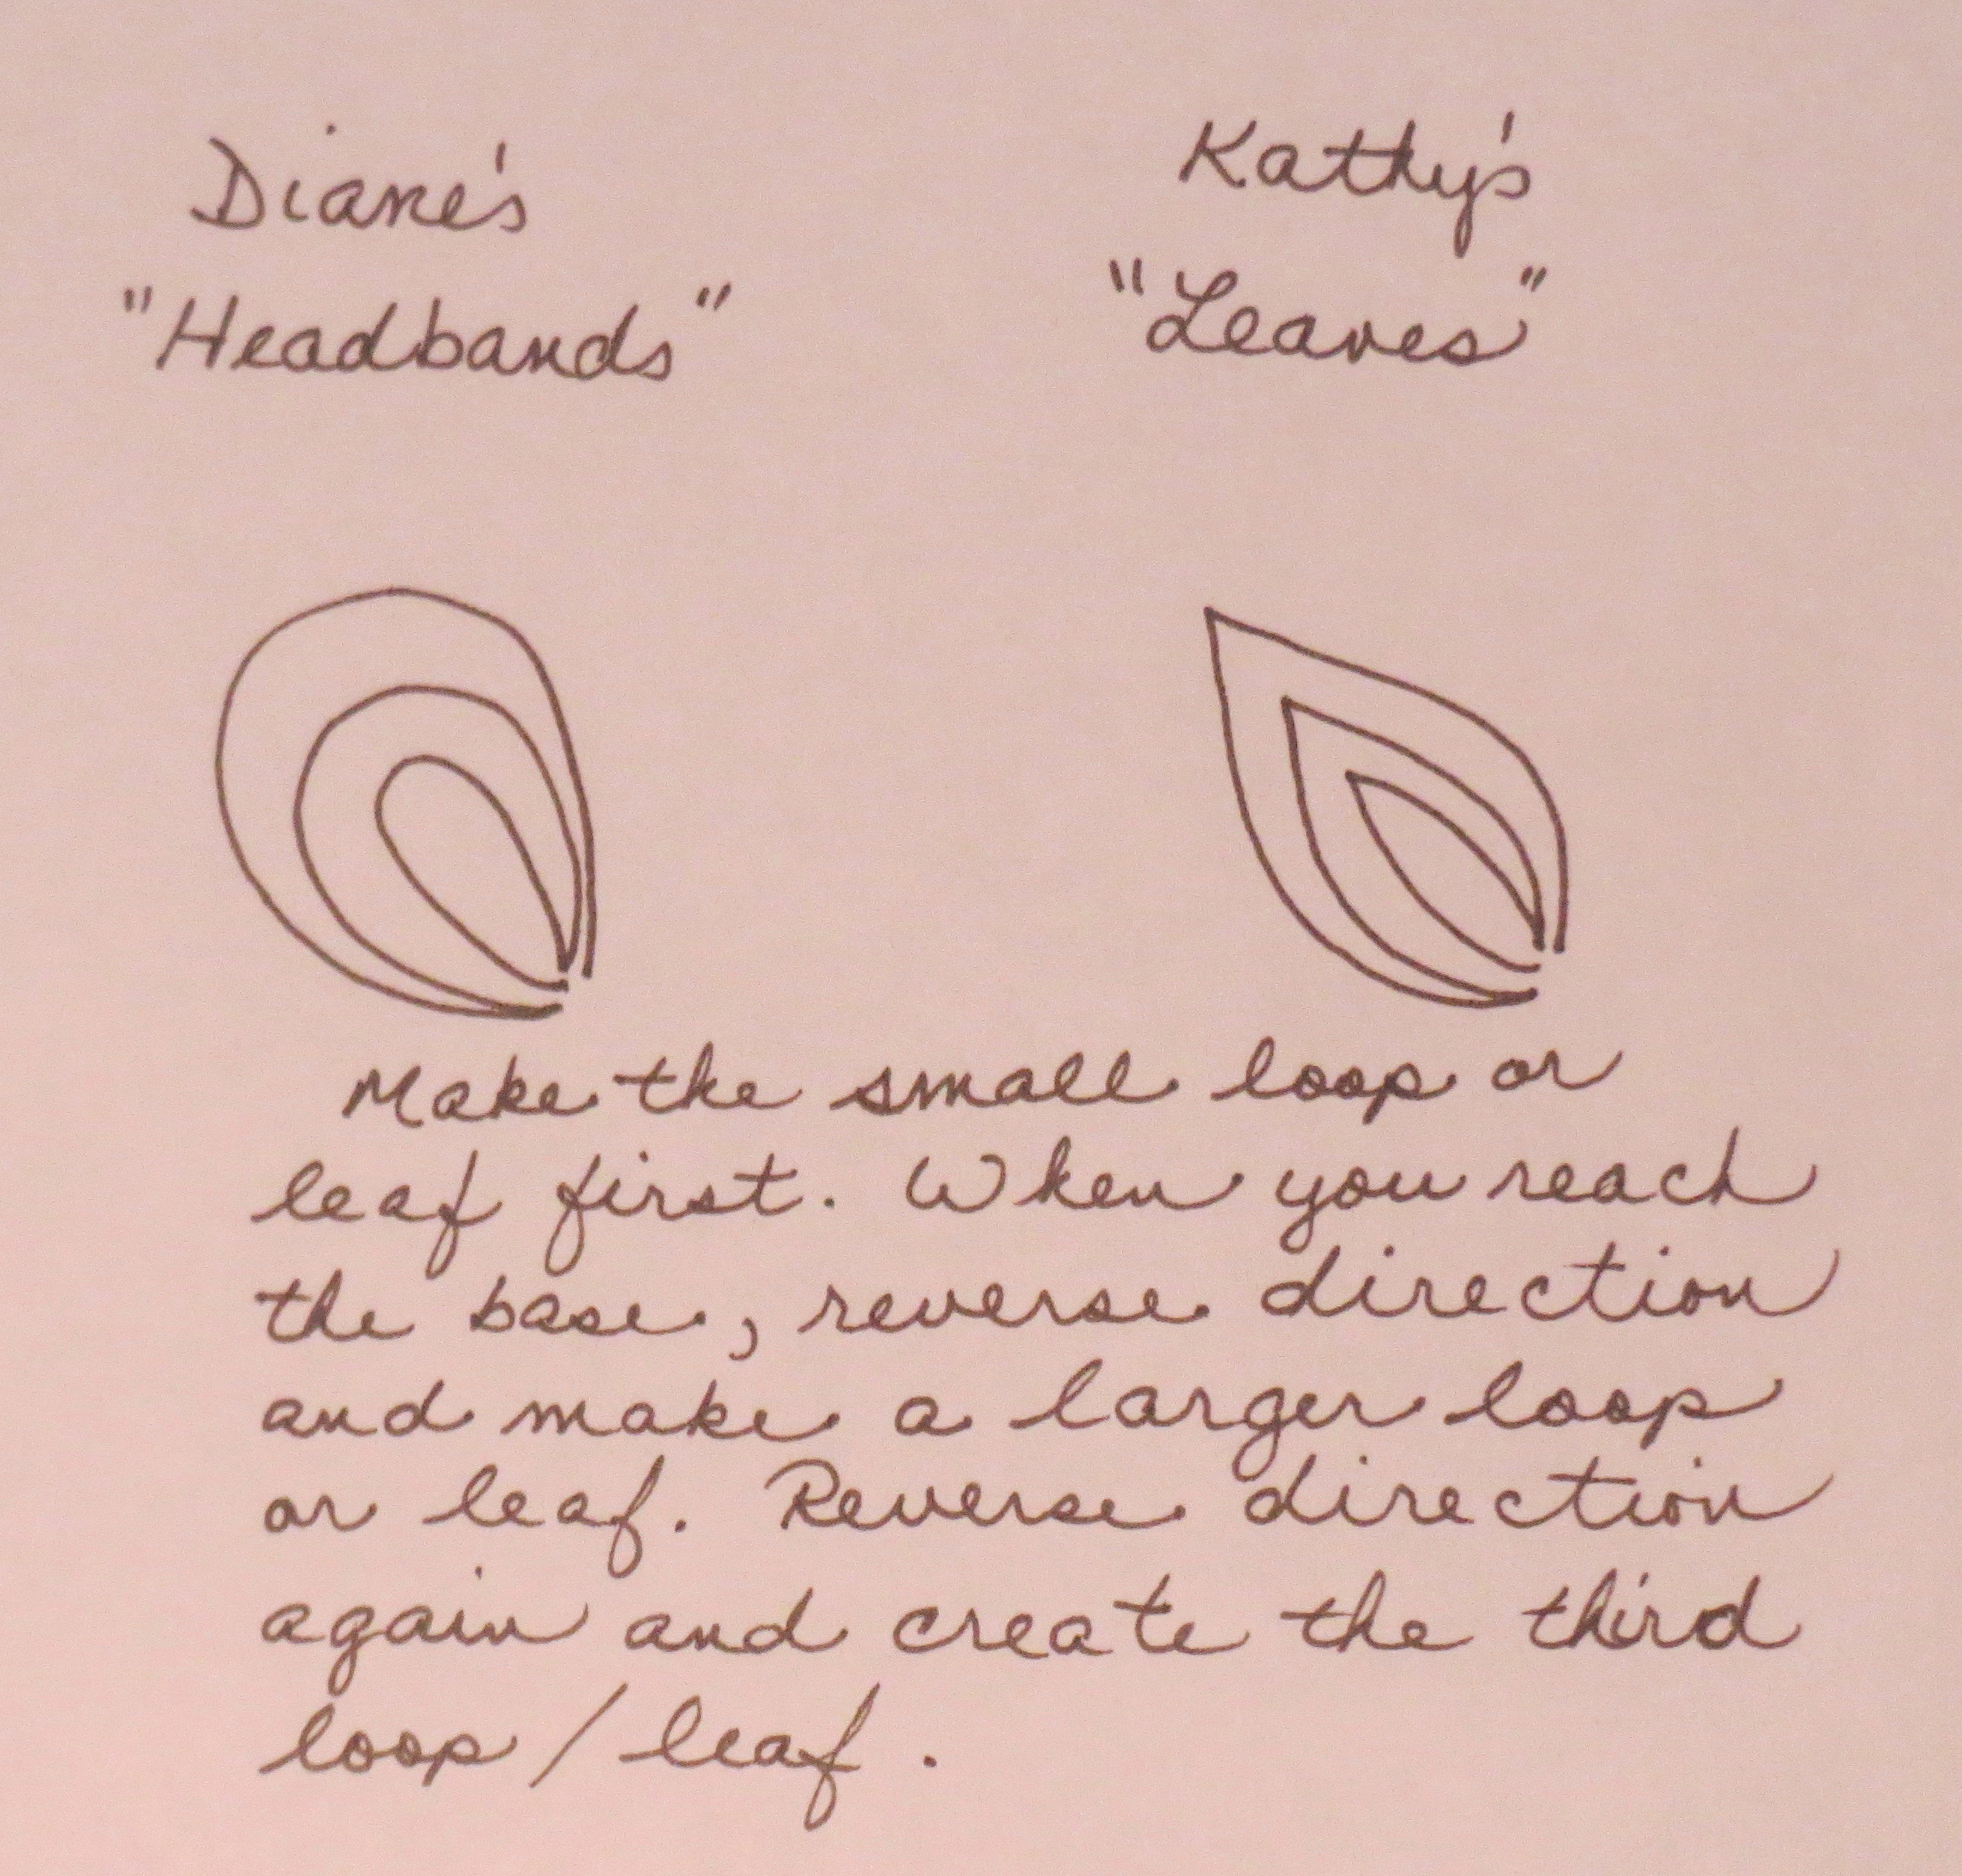 Diane's
"Headbands"
Kathy's
"Leaves"
Make the small loop or
leaf first. When you reach
the base, reverse direction
and make a larger loop
or leaf. Reverse direction
again and create the third
loop / leaf.